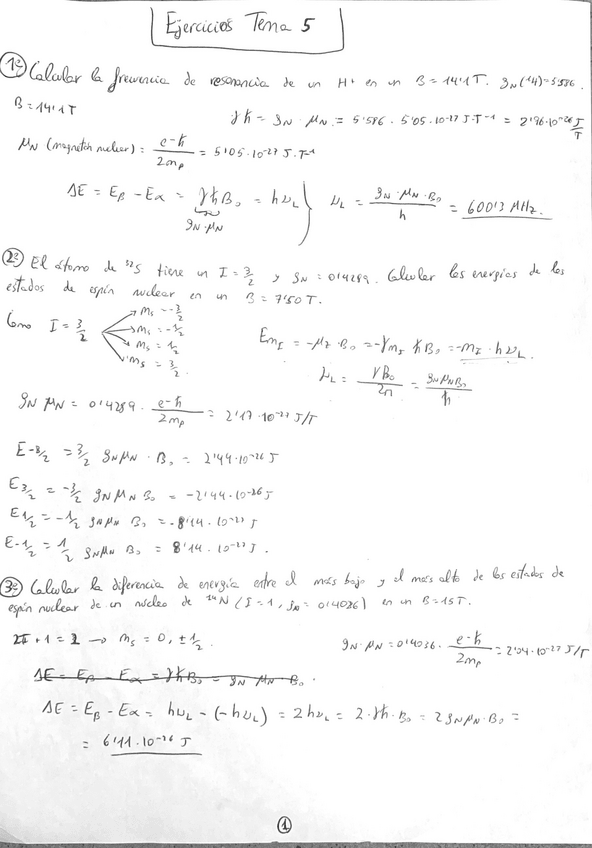 Ejercicios Tema 5
1º Calcular la frecuencia de resonancia de un H⁺ en un B = 14'1 T. gN(¹H) = 5'586.
B = 14'1 T
γħ = gN · μN = 5'586 · 5'05·10⁻²⁷ J·T⁻¹ = 2'96·10⁻²⁶ J/T
μN (magnetón nuclear) = e·ħ/2mp = 5'05·10⁻²⁷ J·T⁻¹
ΔE = Eβ - Eα = γħB₀ = hνL
gN·μN
νL = gN·μN·B₀/h = 600'3 MHz.
2º El átomo de ³²S tiene un I = 3/2 y gN = 0'4289. Calcular las energías de los
estados de espín nuclear en un B = 7'50 T.
Como I = 3/2
ms = -3/2
ms = -1/2
ms = 1/2
ms = 3/2
EmI = -μz·B₀ = -γmI ħB₀ = -mI·hνL.
νL = γB₀/2π = gNμNB₀/h
gN μN = 0'4289 · e·ħ/2mp = 2'17·10⁻²⁷ J/T
E-3/2 = 3/2 gNμN · B₀ = 2'44·10⁻²⁶ J
E3/2 = -3/2 gNμN B₀ = -2'44·10⁻²⁶ J
E1/2 = -1/2 gNμN B₀ = -8'14·10⁻²⁷ J
E-1/2 = 1/2 gNμN B₀ = 8'14·10⁻²⁷ J.
3º Calcular la diferencia de energía entre el más bajo y el más alto de los estados de
espín nuclear de un núcleo de ¹⁴N (I = 1, gN = 0'4036) en un B = 15 T.
2I + 1 = → ms = 0, ±1/2.
gN·μN = 0'4036 · e·ħ/2mp = 2'04·10⁻²⁷ J/T
ΔE = Eβ - Eα = γħB₀ = gN μN B₀.
ΔE = Eβ - Eα = hνL - (-hνL) = 2hνL = 2·γħ·B₀ = 2gNμN·B₀ =
= 6'11·10⁻²⁶ J
1